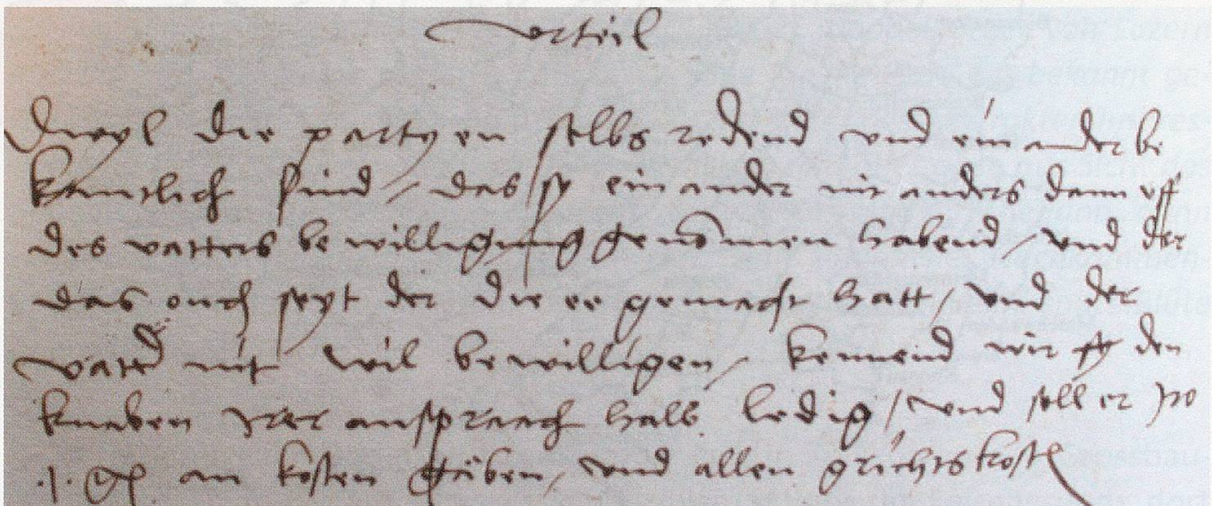 Urteil
Diewyl die partyen selbs redend und ein ander be
kantlich sind / das sy ein ander nit anders dann uff
des vatters bewilligung genommen habend / und der
das ouch seyt der die ee gemacht hatt / und der
vatter nit wil bewilligen / kennend wir den
knaben irer ansprach halb ledig / und soll er iro
.1. an kosten gäben, und allen grichtskosten